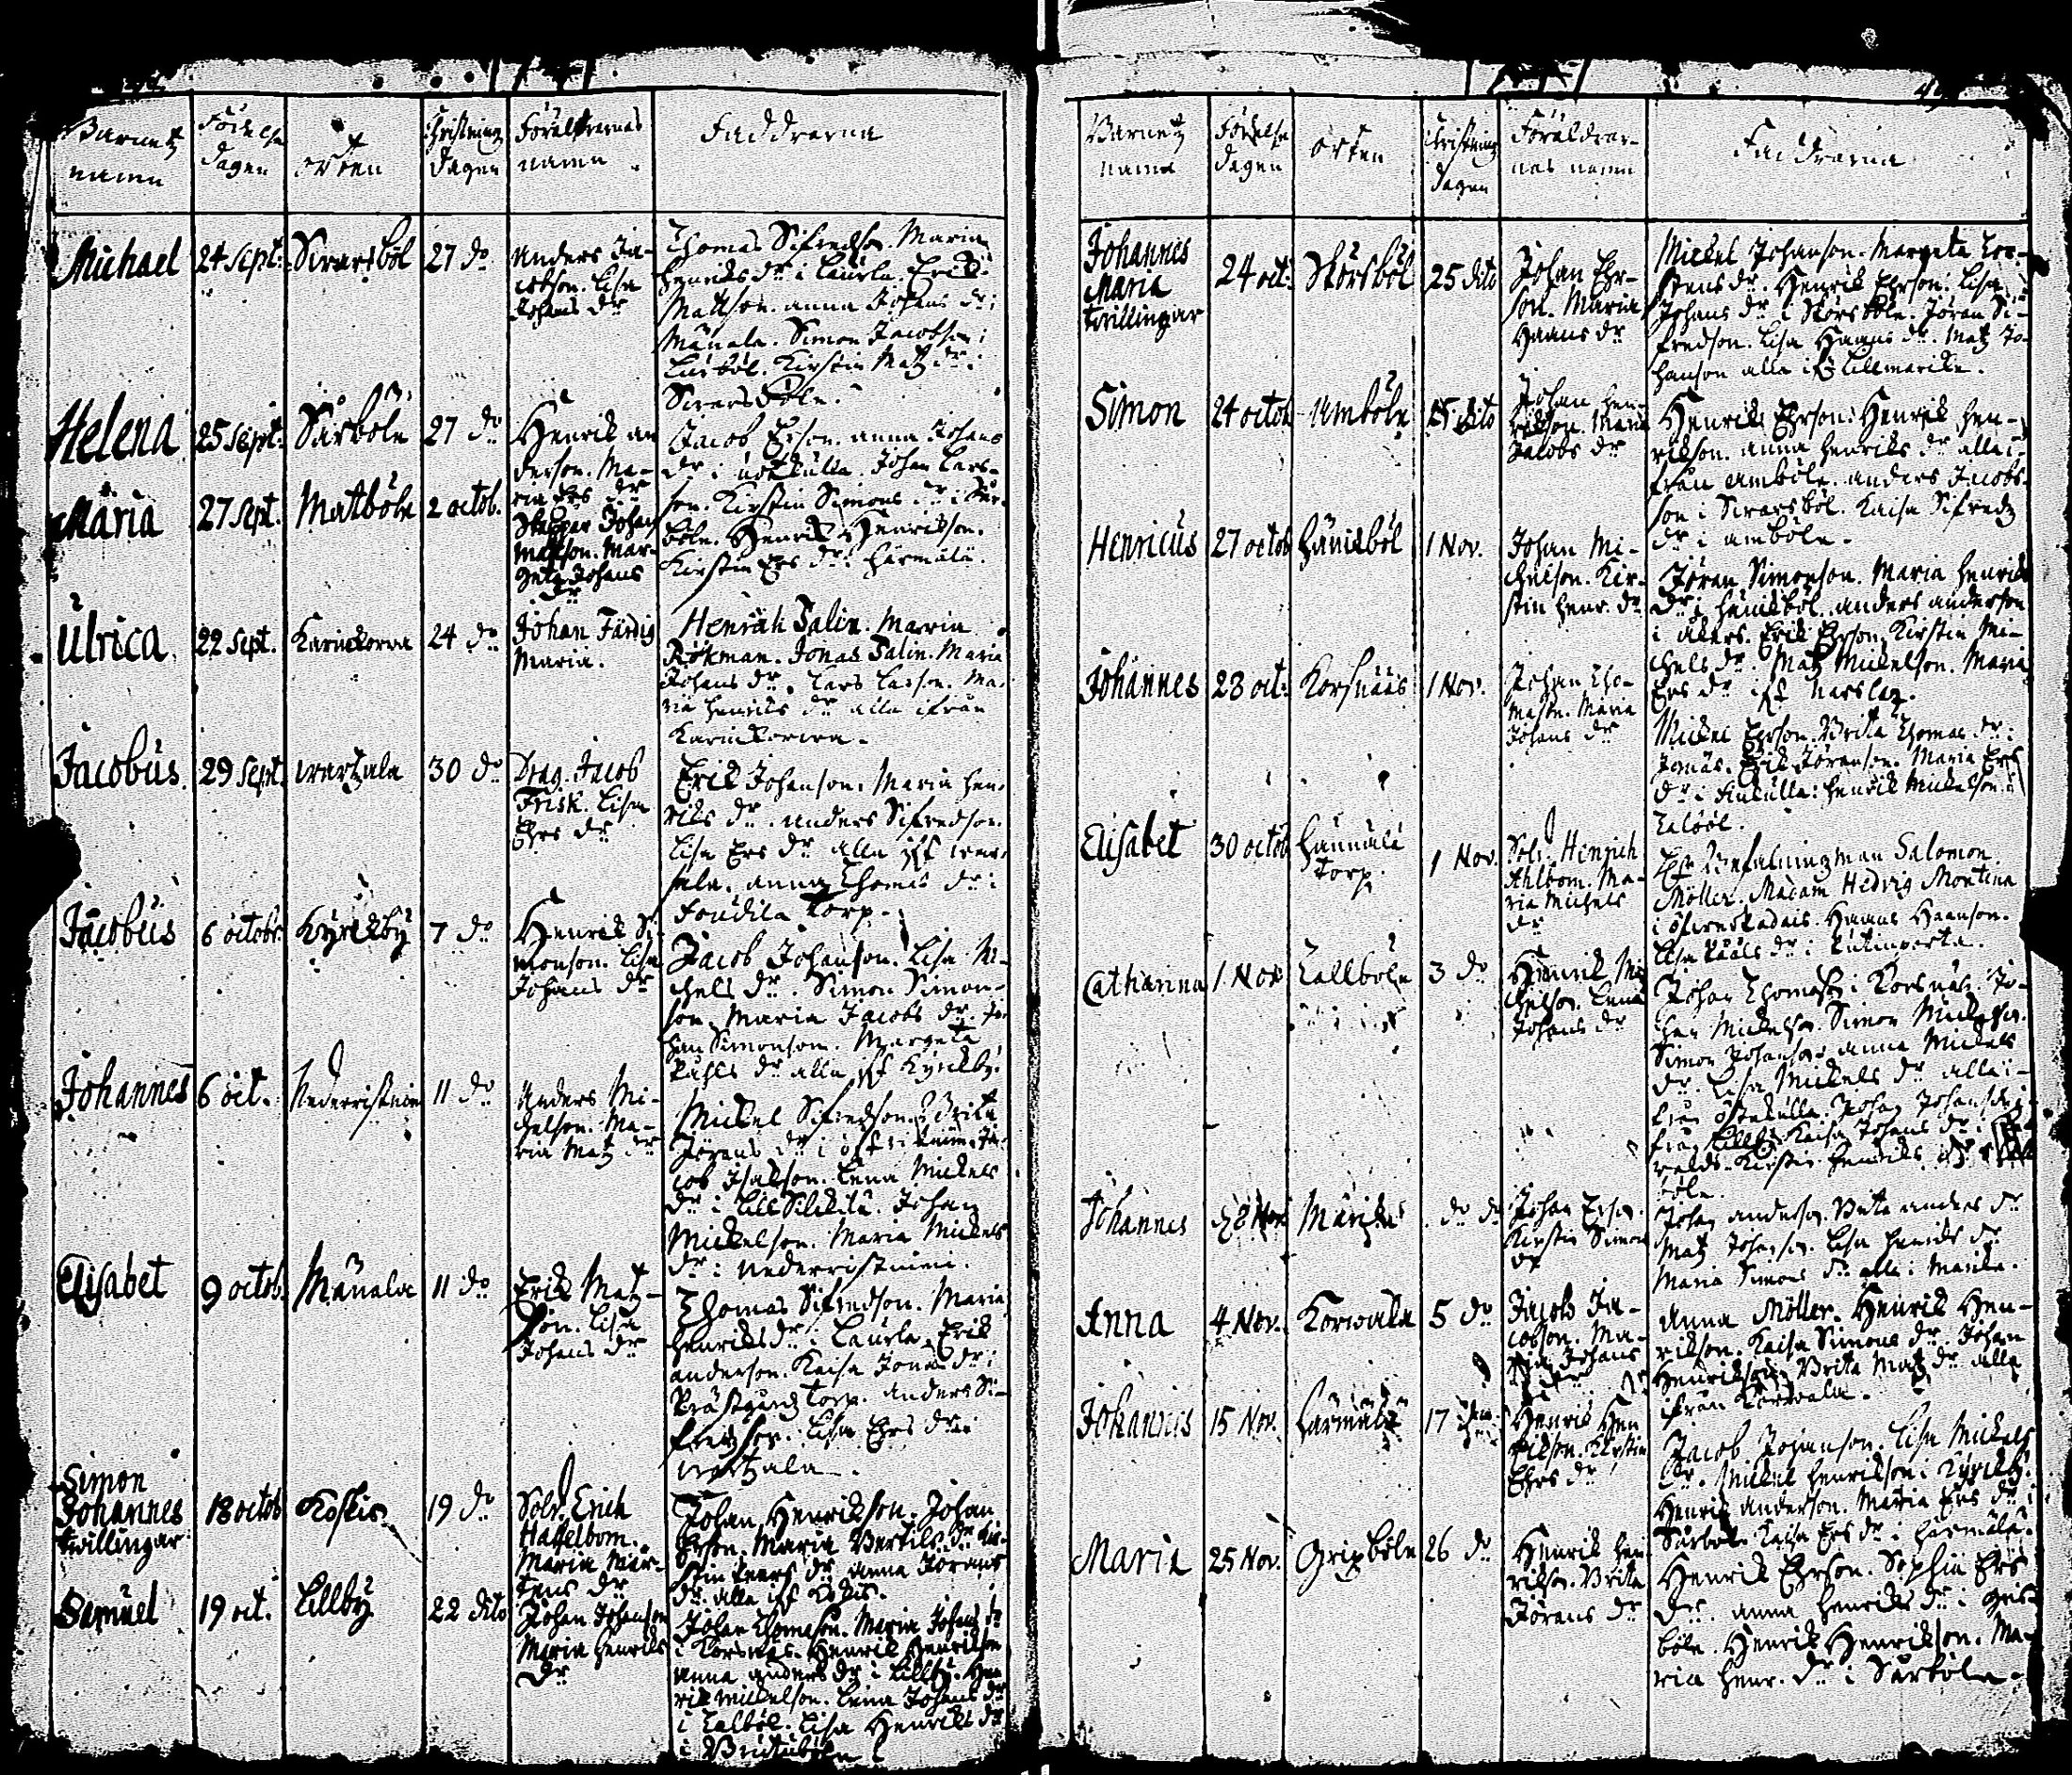 Barnetz namn
Födelse dagen
orten
Christnings dagen
Föräldrarnas namn
Faddrarna
Michael 24 Sept. Sirarsböl 27 do Anders Ja-
cobson. Lisa
Johans dr
Thomas Sifredson. Maria
Henriks dr i Laurla. Erik
Mattson. anna Johans dr i
Månala. Simon Jacobson i
Kirstin Matz dr i
Sirarsböle.
Helena 25 Sept. Sårböle 27 do Henrik an
derson. Ma-
ria Ers dr
Jacob Erson. anna Johans
dr i Johan Lars-
son. Kirstin Simons dr i Sår-
böle. Henrik Henrikson.
Kirstin Ers dr i Härmälä.
Maria 27 Sept. Matböle 2 octob. Johan
Matson. Mar-
geta Johans
dr
Ulrica 22 Sept. Karickorva 24 do Johan Färdig
Maria.
Henrik Salin. Maria
Rökman. Jonas Salin. Maria
Johans dr. Lars Larson. Ma-
ria Henriks dr alla ifrån
Karickorva.
Jacobus 29 Sept. wartzala 30 do Drag. Jacob
Frisk. Lisa
Ehrs dr
Erik Johanson. Maria Hen-
riks dr. anders Sifredson.
Lisa Ers dr alla
anna Thomas dr i
Torp.
Jacobus 6 octobr. Kyrckby 7 do Henrik Si-
monson. Lisa
Johans dr
Jacob Johanson. Lisa Mi-
chels dr. Simon Simon-
son. Maria Jacobs dr. Jo-
han Simonson. Margeta
Påhls dr alla Kyrckby.
Johannes 6 oct. Nederristnim 11 do Anders Mi-
chelson. Ma-
ria Matz dr
Mickel Sifredson. Brita
Jörans dr i Ja-
cob Isakson. Lena Mickels
dr i Johan
Mickelson. Maria Mickels
dr i Nederristnimi.
Elisabet 9 octob. Månala 11 do Erik Matz-
son. Lisa
Johans dr
Thomas Sifredson. Maria
Henriks dr i Laurla. Erik
anderson. Kaisa Jons dr i
Prästgårdz Torp. anders Si-
fredson. Lisa Ehrs dr i
wartzala.
Simon
Johannes
twillingar
18 octob Koskis 19 do Sold. Erich
Hasselbom.
Maria Mår-
tens dr
Johan Henrikson. Johan
Erson. Maria Bertils dr Kir-
stin dr anna Jörans
dr. alla Koskis.
Samuel 19 oct. Lillby 22 dito Johan Johanson
Maria Henriks
dr
Johan Thomason. Maria Johans dr
i Korsnäs. Henrik Henrikson
Anna anders dr i Lillby. Hen
rik Mickelson. Lena Johans dr
i Talböl. Lisa Henriks dr
i
Barnetz namn
Födelse dagen
orten
Christnings dagen
Föräldrar-
nas namn
Faddrarna
Johannes
Maria
twillingar
24 oct. Störsböl 25 dito Johan Ehr-
son. Maria
Haans dr
Mickel Johanson. Margeta
dr. Henrik Ehrson. Lisa
Johans dr i Störsböle. Jöran Si-
fredson. Lisa Haans dr. Matz Jo-
hanson alla Lillmarike.
Simon 24 octob Amböle 25 dito Johan Hen-
rikson. Maria
Jacobs dr
Henrik Ehrson. Henrik Hen-
rikson. anna Henriks dr alla i-
från amböle. anders Jacobs-
son i Sirarsböl. Kaisa Sifredz
dr i amböle.
Henricus 27 octob Häniksböl 1 Nov. Johan Mi-
chelson. Kir-
stin Henr. dr
Jöran Simonson. Maria Henriks
dr i anders anderson
i åkers. Erik Ehrson. Kirstin Mi-
chels dr. Matz Mickelson. Maria
Ers dr
Johannes 28 oct. Korsnääs 1 Nov. Johan Tho-
mason. Maria
Johans dr
Mickel Erson. Brita Thomas dr i
Erik Jöranson. Maria Ers
dr i Finkulla: Henrik Mickelson i
Talböl.
Elisabet 30 octob
torp.
1 Nov. Sold. Henrich
Ahlbom. Ma-
ria Michels
dr
Salomon
Möller. Madam Hedvig Montina
i Haans Haanson.
Lisa dr i
Catharina 1 Nov Tallböle 3 do Henrik Mi
chelson. Lena
Johans dr
Johan Thomason i Korsnäs. Jo-
han Mickelson. Simon Mickelson.
Simon Johanson. anna Mickels
dr. Lisa Mickels dr alla i-
Johan Johanson i-
från Lillby. Kaisa Johans dr i
Kirstin Henriks dr
böle.
Johannes Nov Märike do do Johan Erson.
Kirstin Simons
dr
Johan anderson. Brita anders dr
Matz Johanson. Lisa Henriks dr
Maria Simons dr alla i Marike.
Anna 4 Nov. Korwala 5 do Jacob Ja-
cobson. Ma-
ria Johans
dr
Anna Möller. Henrik Hen-
rikson. Kaisa Simons dr. Johan
Henrikson. Brita Matz dr alla
ifrån Korwala.
Johannes 15 Nov. Härmälä 17 Henrik Hen
rikson. Kirstin
Ehrs dr
Jacob Johanson. Lisa Mickels
dr. Mickel Henrikson i Kyrckby.
Henrik Anderson. Maria Ers dr i
Sårböle. Kaisa Ers dr i Härmälä.
Maria 25 Nov. Gripböle 26 do Henrik Hen
rikson. Brita
Jörans dr
Henrik Ehrson. Sophia Ers
dr. anna Henriks dr i Grip-
böle. Henrik Henrikson. Ma-
ria Henr. dr i Sårböle.